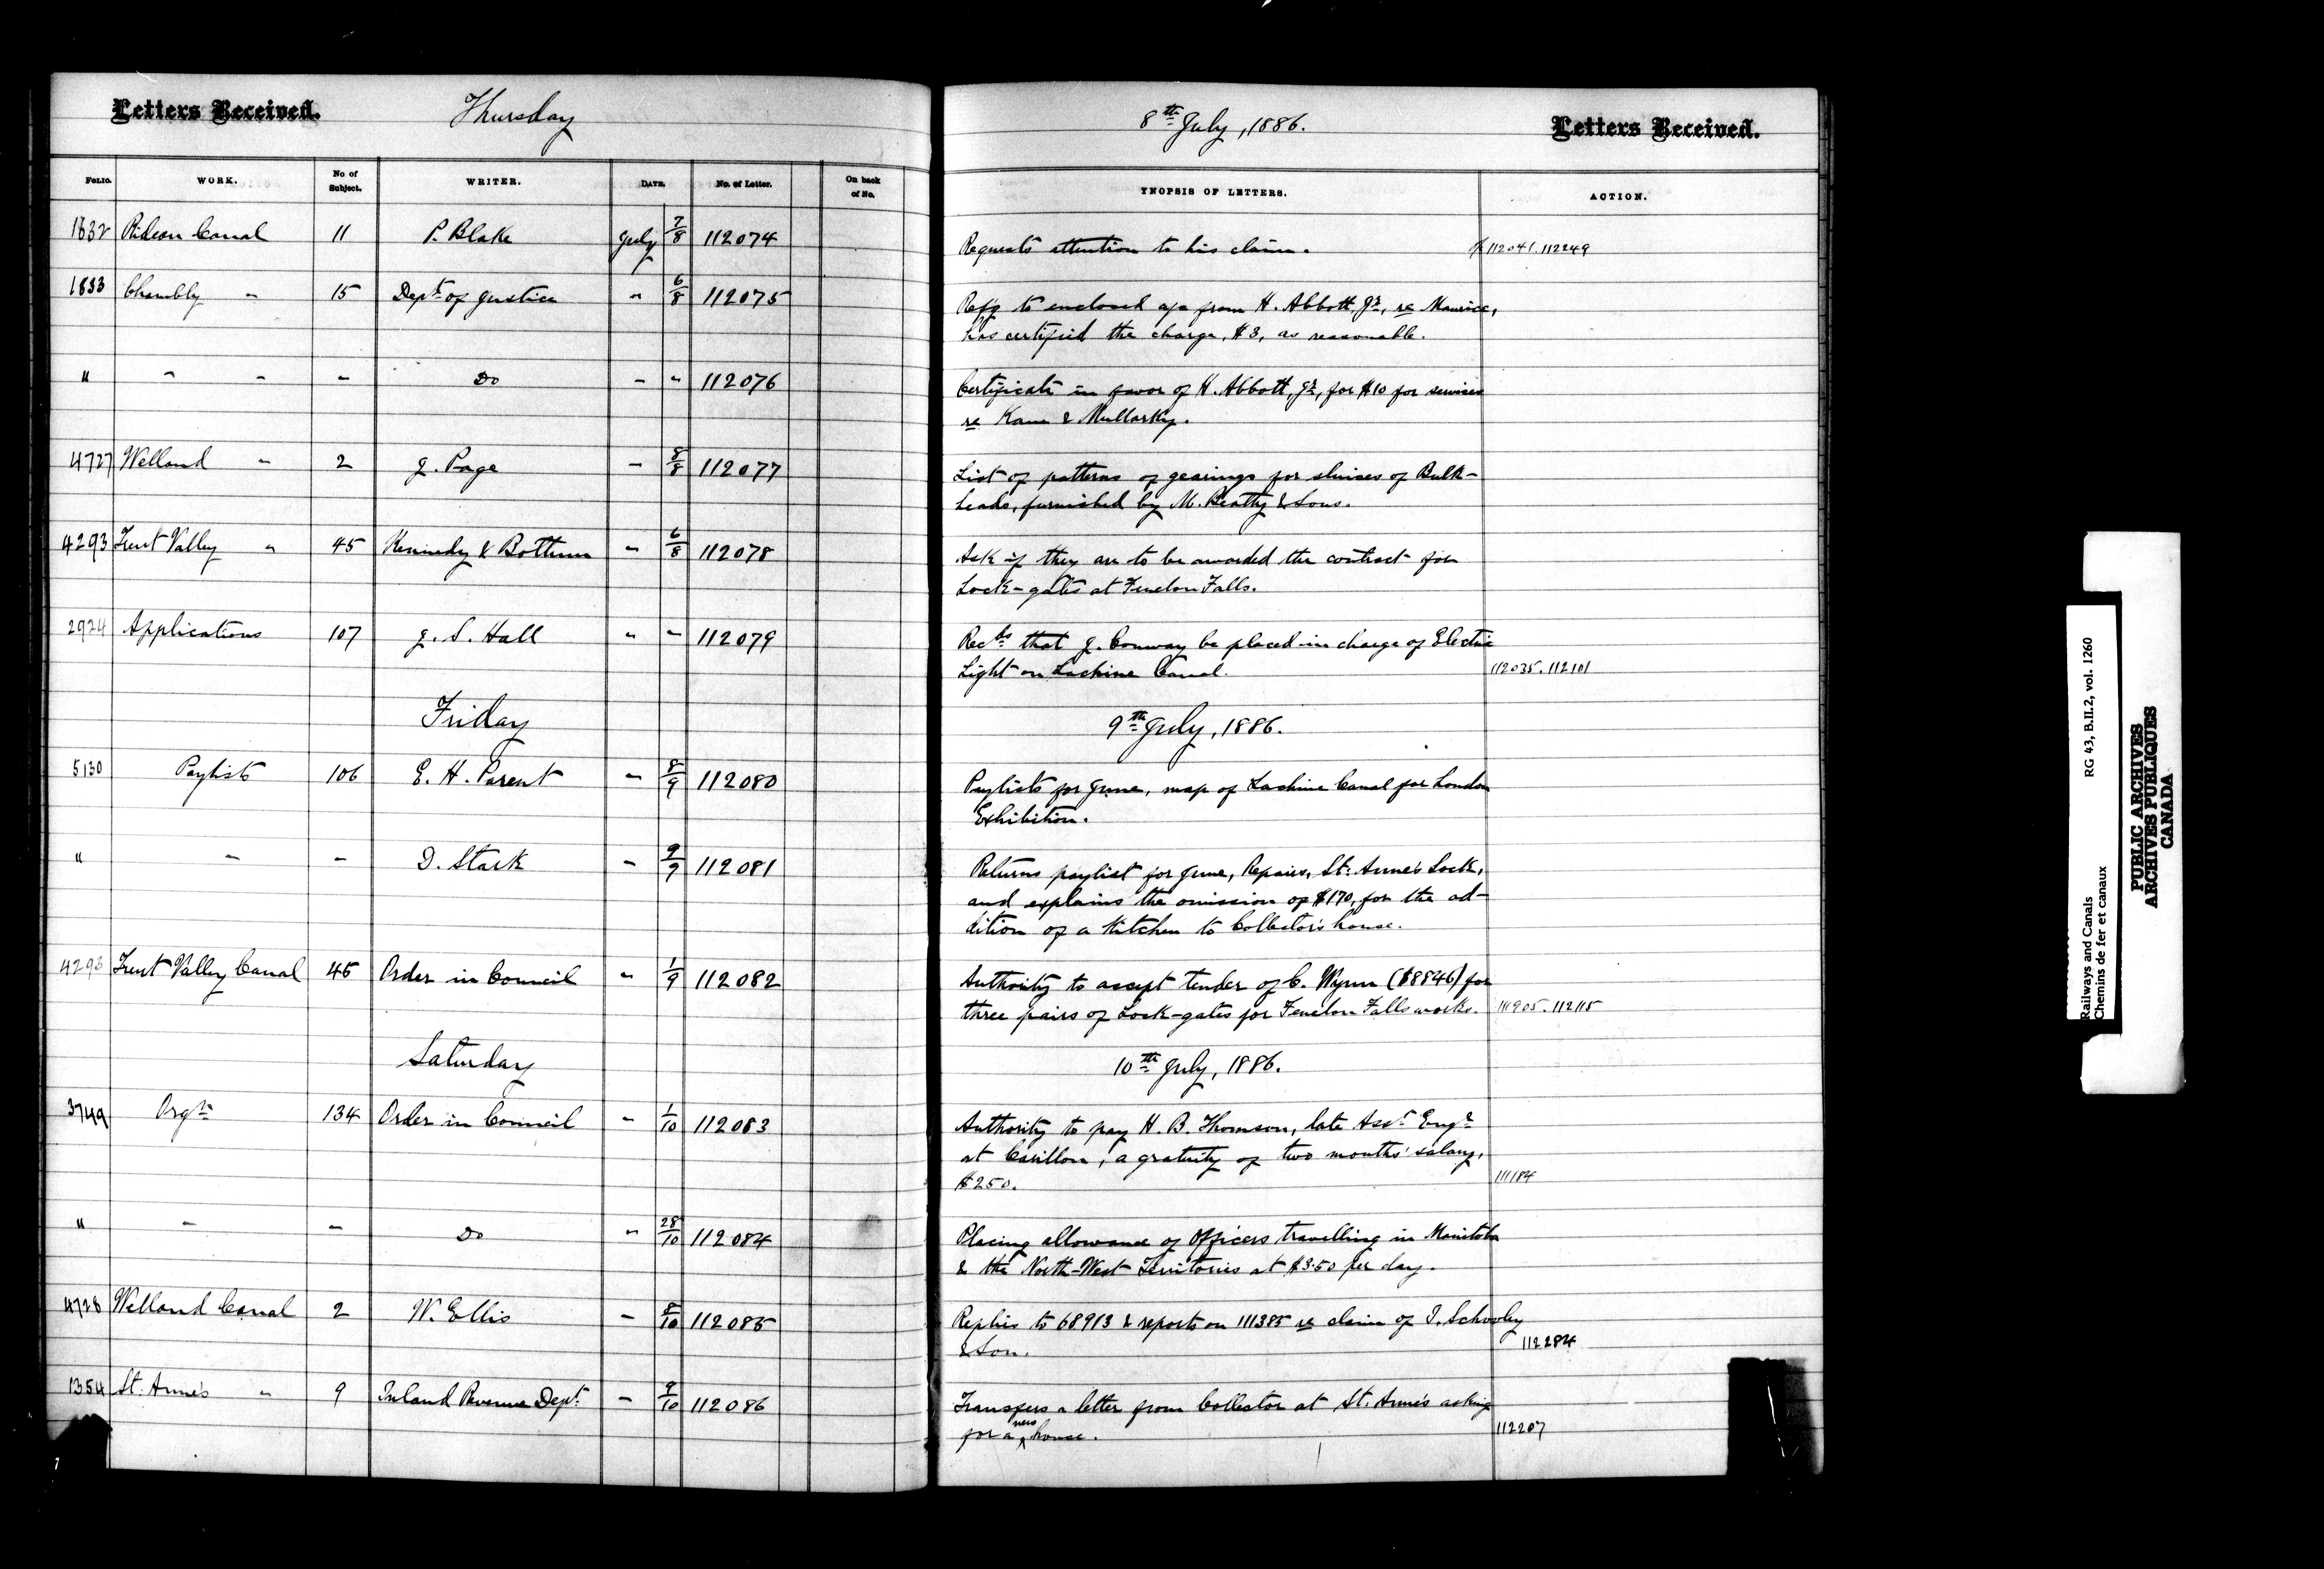 Letters Received. Thursday 8th July, 1886. Letters Received.
FOLIO. WORK. No of Subject. WRITER. DATE. No. of Letter. On back of No. YNOPSIS OF LETTERS. ACTION.
1832 Rideau Canal 11 P. Blake July 7/8 112074 Requests attention to his claim. 112041. 112249
1833 Chambly " 15 Dept of Justice " 6/8 112075 Refg to enclosed a/c from H. Abbott, Jr, re Maurice,
has certified the charge, $3, as reasonable.
" " " " Do " " 112076 Certificate in favor of H. Abbott, Jr, for $10 for services
re Kane & Mullarky.
4727 Welland " 2 J. Page " 8/8 112077 List of patterns of gearings for sluices of Bulk-
heads, furnished by M. Beatty & Sons.
4293 Trent Valley " 45 Kennedy & Bottum " 6/8 112078 Ask if they are to be awarded the contract for
Lock-gates at Fenelon Falls.
2924 Applications 107 J. S. Hall " " 112079 Recds that J. Conway be placed in charge of Electric
Light on Lachine Canal. 112035. 112101
Friday 9th July, 1886.
5130 Paylists 106 E. H. Parent " 8/9 112080 Paylists for June, map of Lachine Canal for London
Exhibition.
" " " D. Stark " 9/9 112081 Returns paylist for June, Repairs, St. Anne's Lock,
and explains the omission of $170, for the ad-
dition of a Kitchen to Collector's house.
4293 Trent Valley Canal 45 Order in Council " 1/9 112082 Authority to accept tender of C. Wynn ($8846) for
three pairs of Lock-gates for Fenelon Falls works. 111905. 112115
Saturday 10th July, 1886.
3749 Orgn 134 Order in Council " 1/10 112083 Authority to pay H. B. Thomson, late Asst Engr
at Carillon, a gratuity of two months' salary,
$250. 111184
" " " Do " 28/10 112084 Placing allowance of Officers travelling in Manitoba
& the North-West Territories at $3.50 per day.
4728 Welland Canal 2 W. Ellis " 8/10 112085 Replies to 68913 & reports on 111385 re claim of J. Schooley
& Son. 112284
1354 St. Anne's " 9 Inland Revenue Dept " 9/10 112086 Transfers a letter from Collector at St. Anne's asking
for a new house. 112207
Railways and Canals RG 43, B.II.2, vol. 1260
Chemins de fer et canaux
PUBLIC ARCHIVES
ARCHIVES PUBLIQUES
CANADA